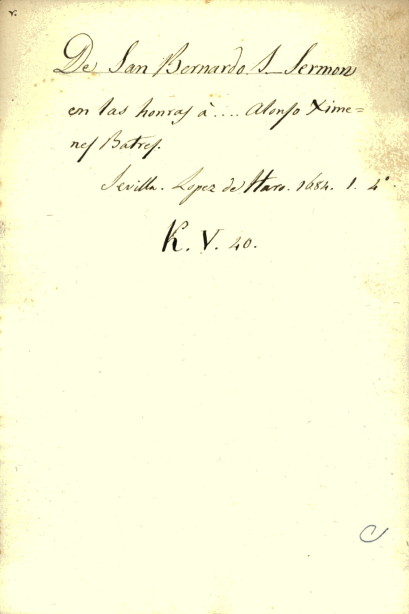 v.
De San Bernardo. S_ Sermon
en las honras à .... Alonso Xime=
nes Batres.
Sevilla. Lopez de Haro. 1684. 1. 4°
K. V. 40.